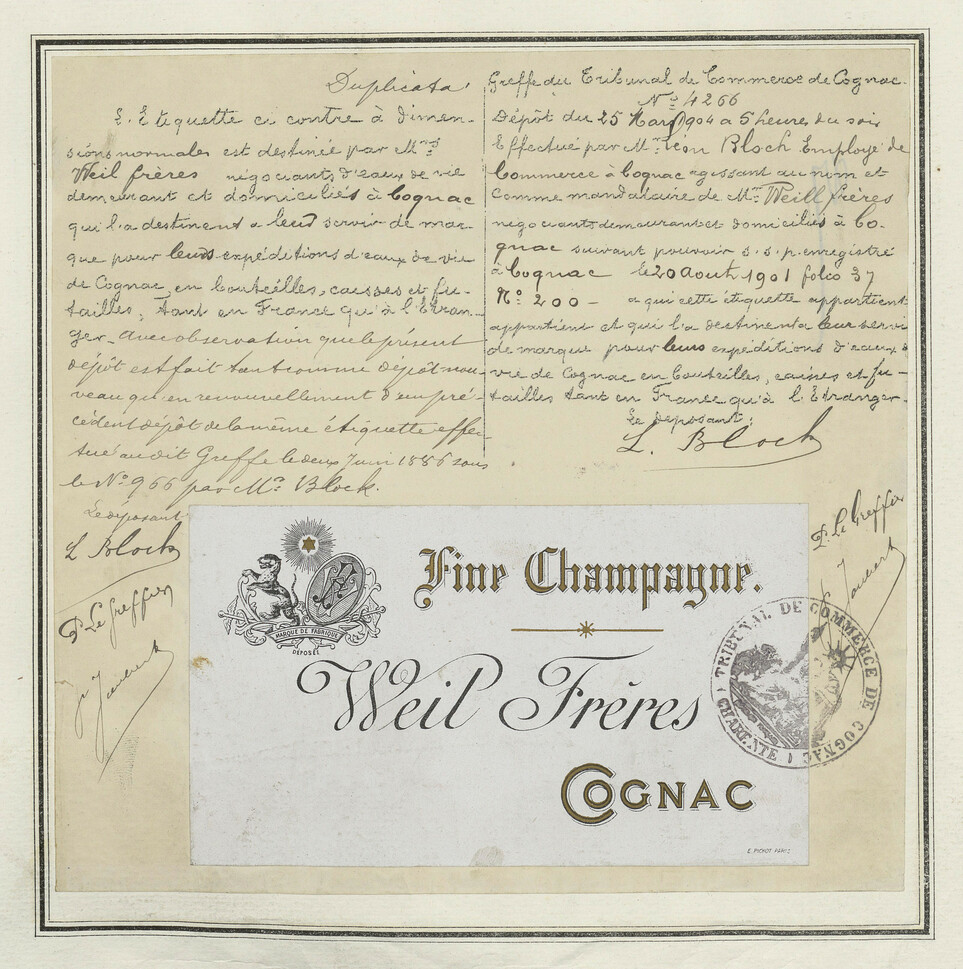 Duplicata
L'Etiquette ci contre à dimen-
sions normales est destinée par Mrs
Weil frères négociants d'eaux de vie
demeurant et domiciliés à Cognac
qui l'a destinent a leur servir de mar-
que pour leurs expéditions d'eaux de vie
de Cognac, en bouteilles, caisses et fu-
tailles, tant en France qu'à l'Etran-
ger. Avec observation que le présent
dépôt est fait tant comme dépôt nou-
veau qu'en renouvellement d'un pré-
cédent dépôt de la même étiquette effec-
tué au dit Greffe le deux Juin 1886 sous
le No 966 par Mr Block.
Le déposant
L Block
P. Le Greffier
Greffe du Tribunal de Commerce de Cognac.
No 4266
Dépôt du 25 Mars 1904 a 5 heures du soir
Effectué par Mr Léon Bloch Employé de
Commerce à Cognac agissant au nom et
comme mandataire de Mrs Weill frères
négociants demeurant et domiciliés à Co-
gnac suivant pouvoir s.s.p. enregistré
à Cognac le 20 Aout 1901 folio 37
No 200 - a qui cette étiquette appartient
appartient et qui l'a destinent a leur servi
de marque pour leurs expéditions d'eaux d
vie de Cognac en bouteilles, caisses et fu-
tailles tant en France qu'à l'Etranger.
Le deposant:
L. Block
P. Le Greffier
MARQUE DE FABRIQUE
DÉPOSÉE
Fine Champagne.
Weil Frères
COGNAC
E. PICHOT PARIS
TRIBUNAL DE COMMERCE DE COGNAC
CHARENTE